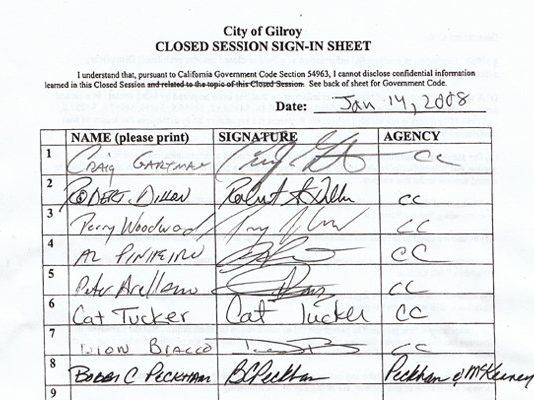 City of Gilroy
CLOSED SESSION SIGN-IN SHEET
I understand that, pursuant to California Government Code Section 54963, I cannot disclose confidential information
learned in this Closed Session and related to the topic of this Closed Session. See back of sheet for Government Code.
Date: Jan 14, 2008
NAME (please print) SIGNATURE AGENCY
1 Craig Gartman CC
2 Robert Dillon Robert Dillon CC
3 Perry Woodward CC
4 Al Pinheiro CC
5 Peter Arellano CC
6 Cat Tucker Cat Tucker CC
7 Dion Bracco CC
8 Bobbi C Peckham BCPeckham Peckham & McKenney
9